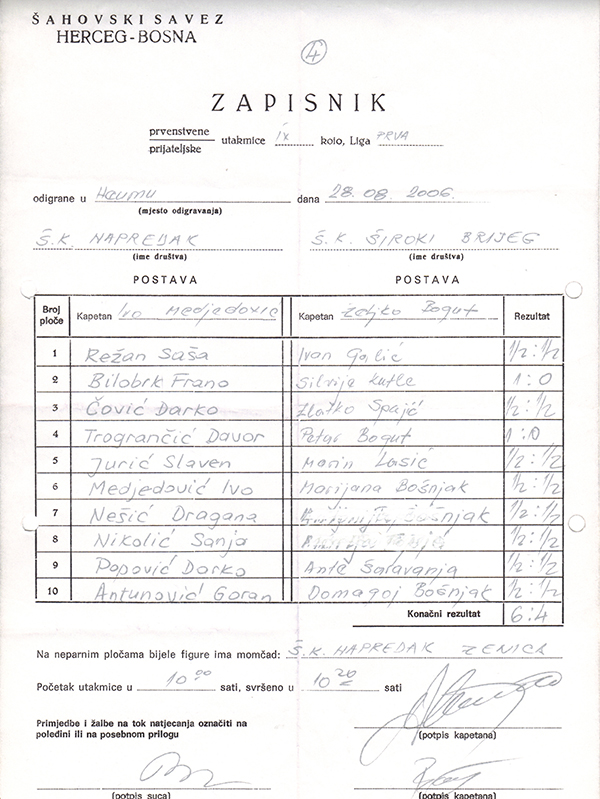 ŠAHOVSKI SAVEZ
HERCEG-BOSNA
4
ZAPISNIK
prvenstvene
prijateljske
utakmice IX kolo, Liga PRVA
odigrane u Neumu dana 28.08 2006.
(mjesto odigravanja)
Š.K. NAPREDAK Š.K. ŠIROKI BRIJEG
(ime društva) (ime društva)
POSTAVA POSTAVA
Broj ploče Kapetan Ivo Medjedovic Kapetan Željko Bogut Rezultat
1 Režan Saša Ivan Galić 1/2:1/2
2 Bilobrk Frano Silvije Kutle 1:0
3 Čović Darko Zlatko Spajić 1/2:1/2
4 Trogrančić Davor Petar Bogut 1:0
5 Jurić Slaven Marin Lasić 1/2:1/2
6 Medjedović Ivo Marijana Bošnjak 1/2:1/2
7 Nešić Dragana Bošnjak 1/2:1/2
8 Nikolić Sanja 1/2:1/2
9 Popović Darko Ante Šaravanja 1/2:1/2
10 Antunović Goran Domagoj Bošnjak 1/2:1/2
Konačni rezultat 6:4
Na neparnim pločama bijele figure ima momčad: Š.K. NAPREDAK ZENICA
Početak utakmice u 10 00 sati, svršeno u 10 20 sati
Primjedbe i žalbe na tok natjecanja označiti na
poleđini ili na posebnom prilogu
(potpis kapetana)
(potpis suca) (potpis kapetana)